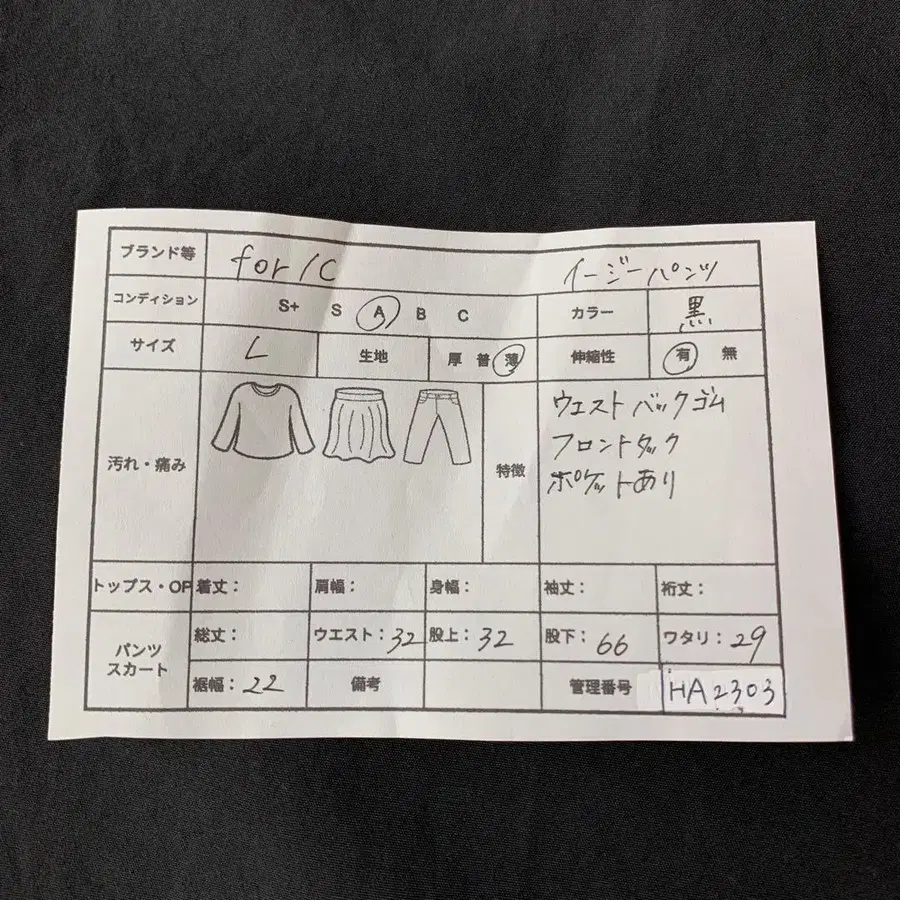 ブランド等 for/c イージーパンツ
コンディション S+ S A B C カラー 黒
サイズ L 生地 厚 普 薄 伸縮性 有 無
汚れ・痛み 特徴
ウエストバックゴム
フロントタック
ポケットあり
トップス・OP 着丈： 肩幅： 身幅： 袖丈： 裄丈：
パンツ
スカート
総丈： ウエスト：32 股上：32 股下：66 ワタリ：29
裾幅：22 備考 管理番号 HA2303